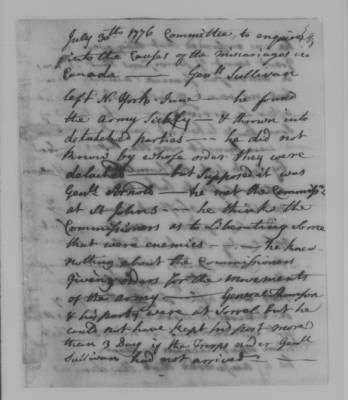 July 30th 1776 Committee to enquire
into the Causes of the miscariages in
Canada — Genll Sullivan
left N. York June — he found
the army Sickly — & thrown into
detatched parties — he did not
know by whose order they were
detached — but Supposed it was
Genll Arnold — he met the Commissrs
at St Johns — he think the
Commissioners as to Liberating Some
that were enemies — he knew
nothing about the Commissioners
giving orders for the movements
of the army — General Thompson
& his party were at Sorrel but he
could not have kept his post more
than 3 Days if the Troops under Genll
Sullivan had not arrived —